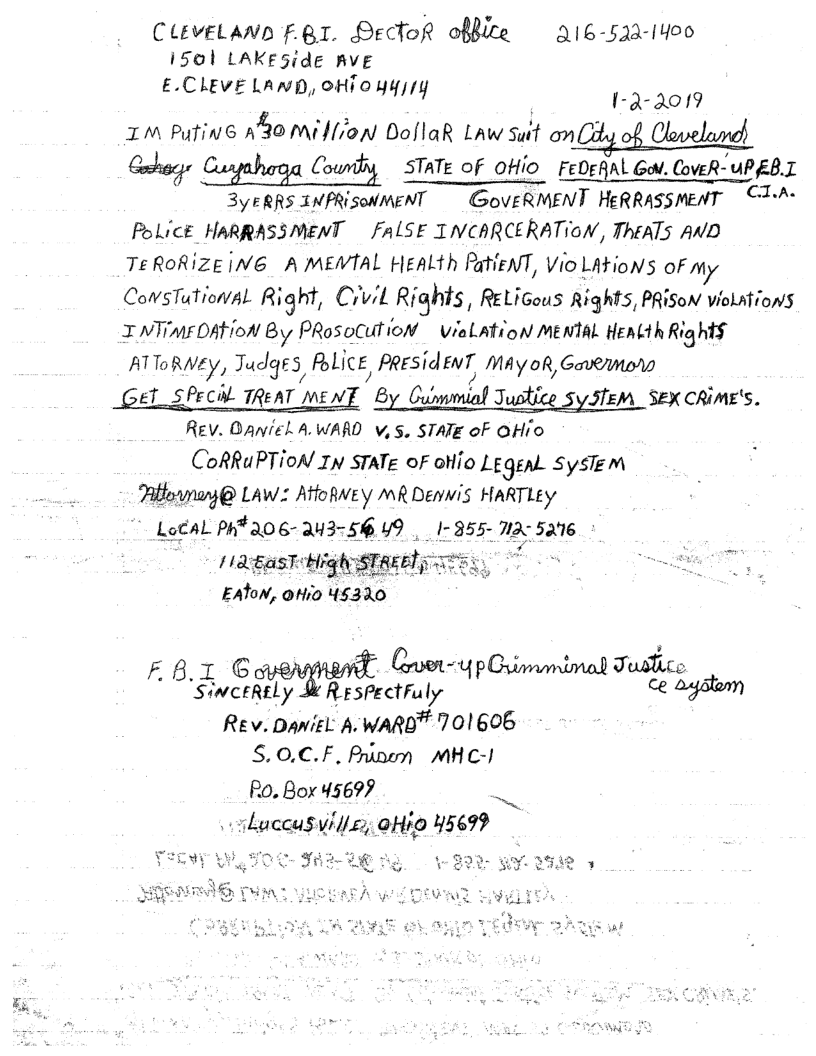 CLEVELAND F.B.I. DECTOR office 216-522-1400
1501 LAKESide AVE
E. CLEVELAND, OHiO 44114
1-2-2019
IM PUTiNG A $30 MilliON DollAR LAW Suit on City of Cleveland
Cuyahoga County STATE OF OHIO FEDERAL GOV. COVER-UP F.B.I
C.I.A.
3yERRS INPRISONMENT GOVERMENT HERRASSMENT
POLiCE HARRASSMENT FALSE INCARCERATION, ThEATS AND
TERORIZEiNG A MENTAL HEAlth PatiENT, VioLAtioNS OF My
CoNSTutioNAL Right, Civil Rights, RELiGous Rights, PRison ViolAtions
INTiMEDATioN By PRosocution VioLATioN MENTAL HEALth RightS
ATToRNEY, Judges, PoLiCE, PRESiDENT, MAyoR, Governors
GET SPECiAL TREATMENT By Crimmial Justice SySTEM SEX CRiME'S.
REV. DANiEL A. WARD V.S. STATE OF OHiO
CoRRuPTioN IN STATE OF OHiO LEGEAL SySTEM
Attorney@ LAW: AttoRNEY MR DENNIS HARTLEY
LoCAL Ph# 206-243-5649 1-855-712-5276
112 EasT High STREEt,
EAtoN, OHio 45320
F.B.I Goverment Cover-up Crimminal Justice
ce system
SiNCERELy & RESPECTFuly
REV. DANiEL A. WARD# 701606
S.O.C.F. Prison MHC-1
P.O. Box 45699
Luccusville, OHiO 45699